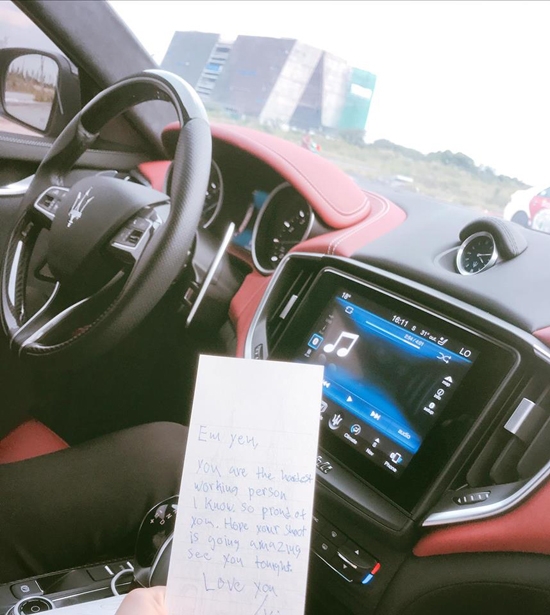 18°
16:11
S
31°
LO
234/421
audio
Climate
Phone
Em yeu,
you are the hardest
working person
I know. so proud of
you. Hope your shoot
is going amazing
see you tonight
Love you